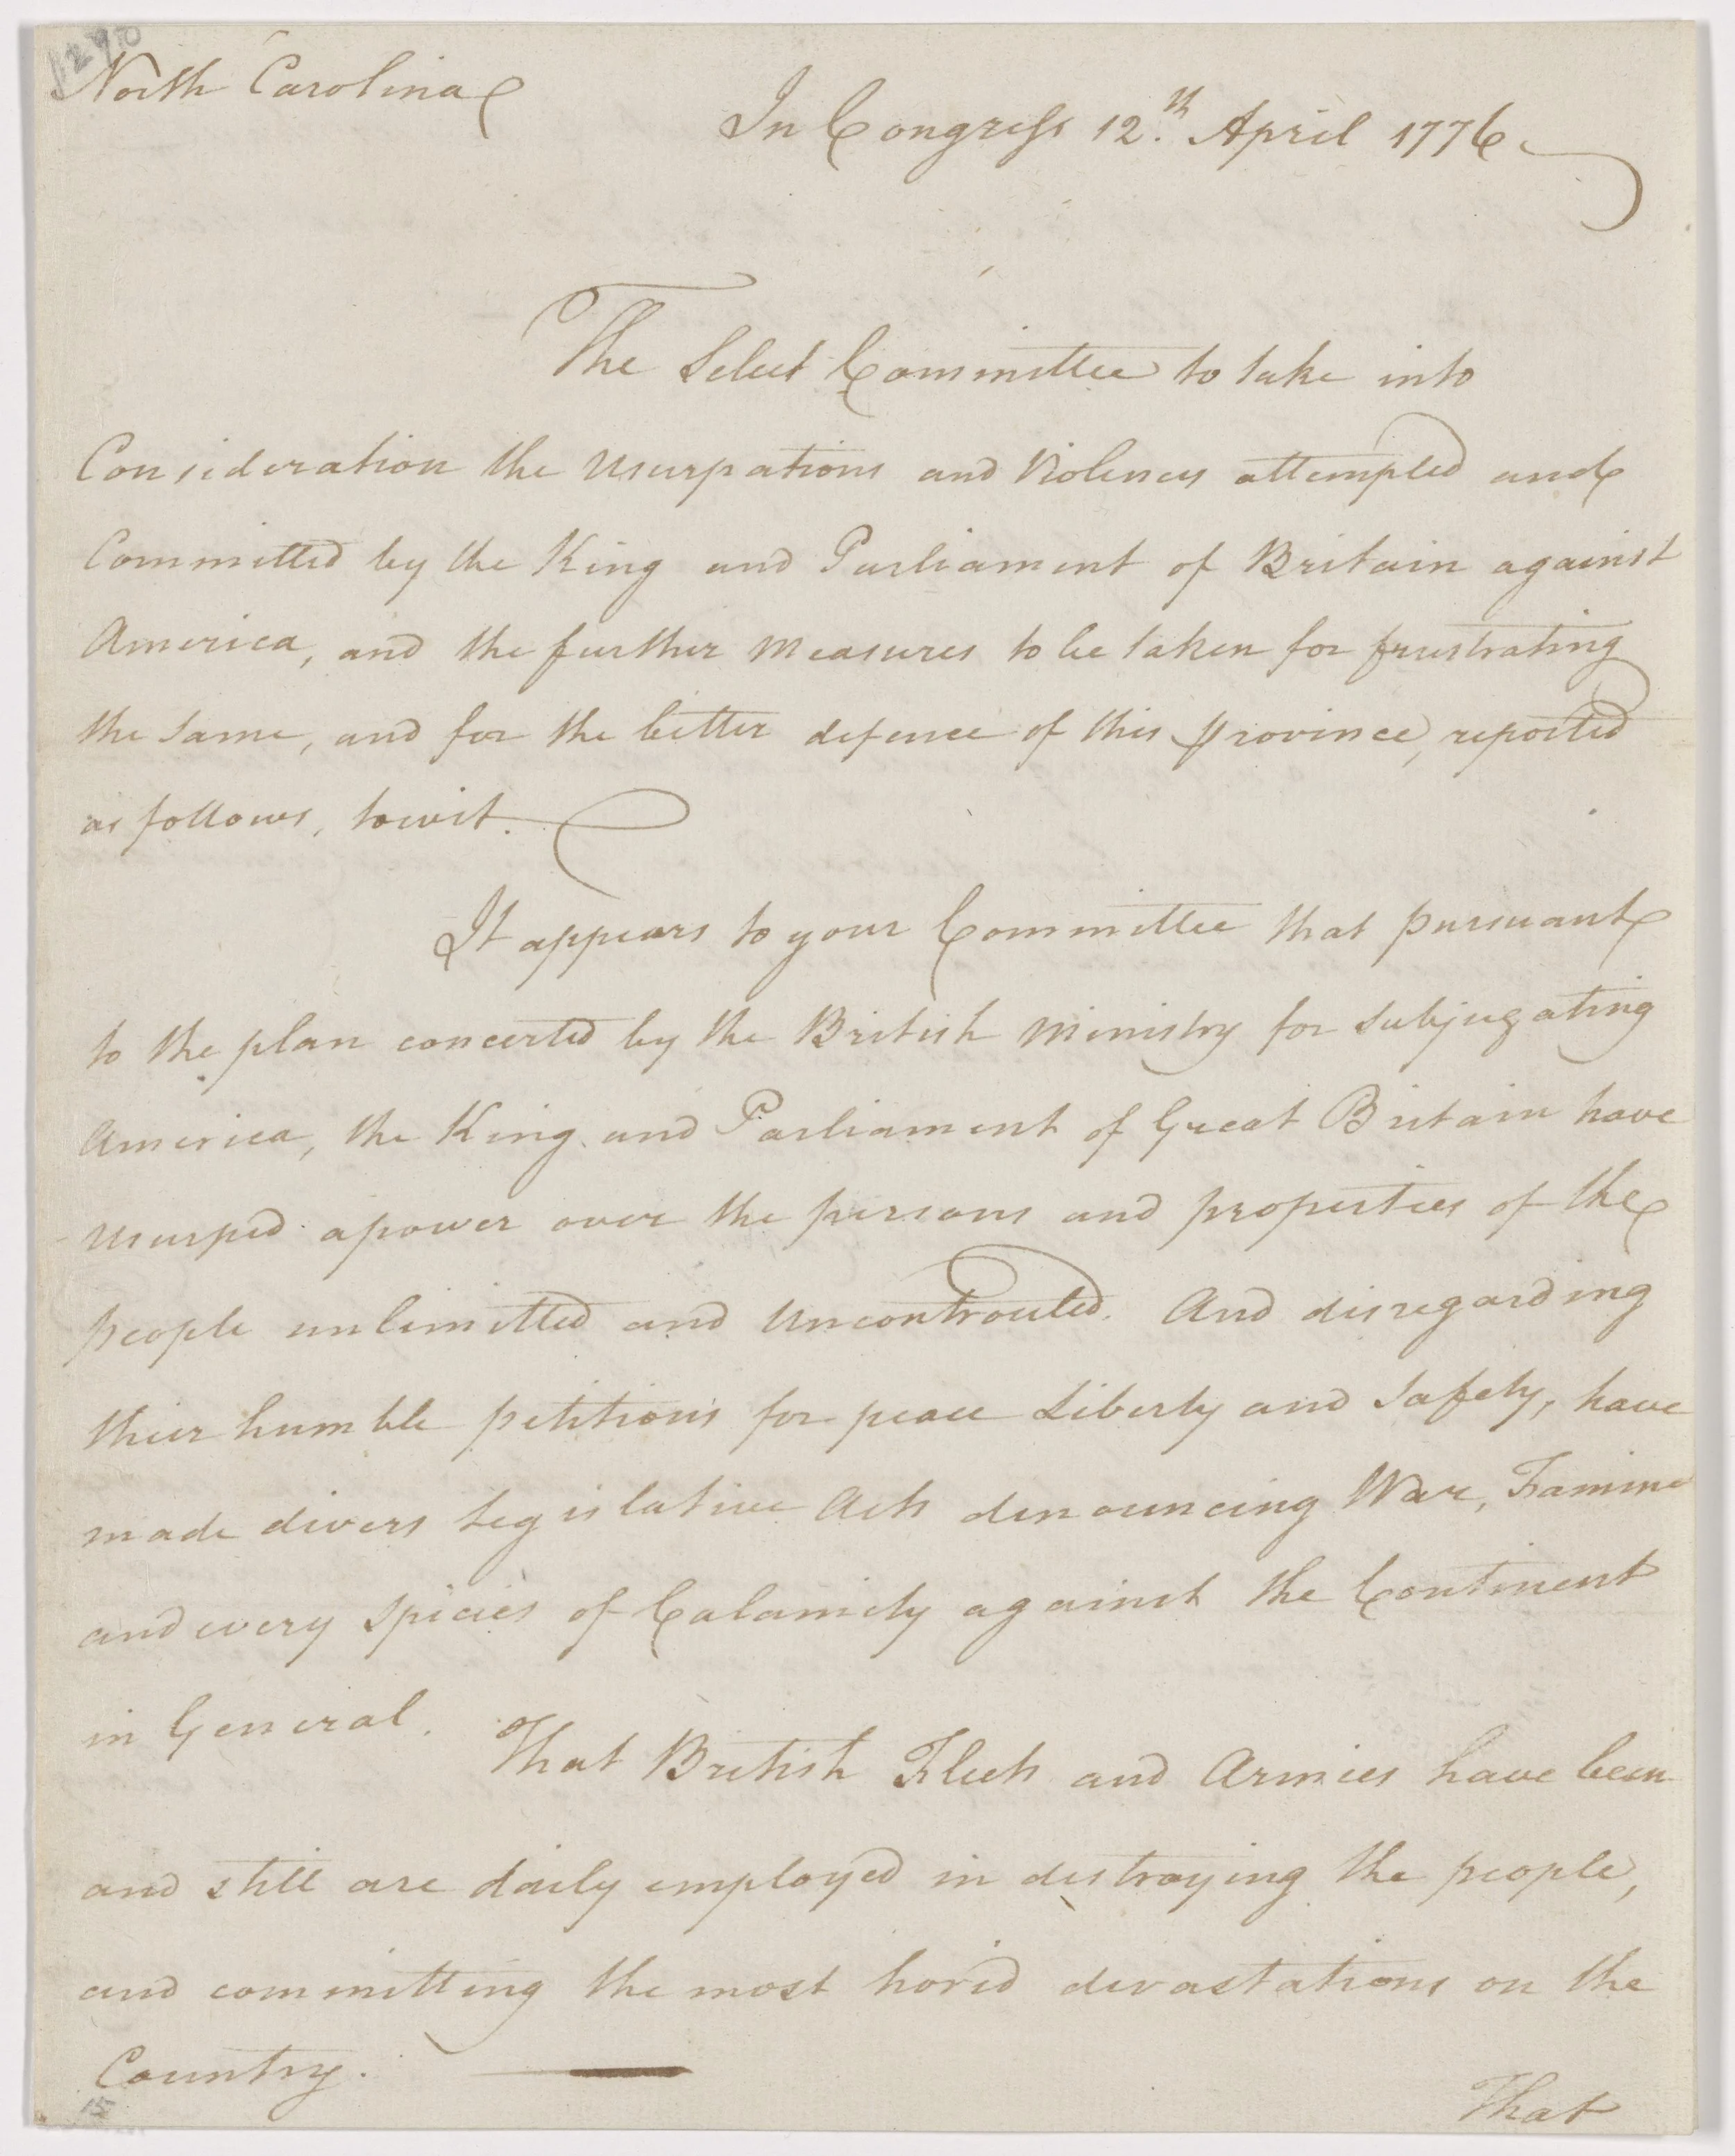 1240
North Carolina
In Congress 12.th April 1776.
The Select Committee to take into
Consideration the Usurpations and Violences attempted and
Committed by the King and Parliament of Britain against
America, and the further Measures to be taken for frustrating
the Same, and for the better defence of this province, reported
as follows, towit.
It appears to your Committee that pursuant
to the plan concerted by the British Ministry for Subjugating
America, the King and Parliament of Great Britain have
Usurped a power over the persons and properties of the
people unlimitted and Uncontrouled. And disregarding
their humble petitions for peace Liberty and Safety, have
made divers Legislative Acts denouncing War, Famine
and every species of Calamity against the Continent
in General. That British Fleets and Armies have been
and still are daily employed in destroying the people,
and committing the most horid devastations on the
Country.
15
That